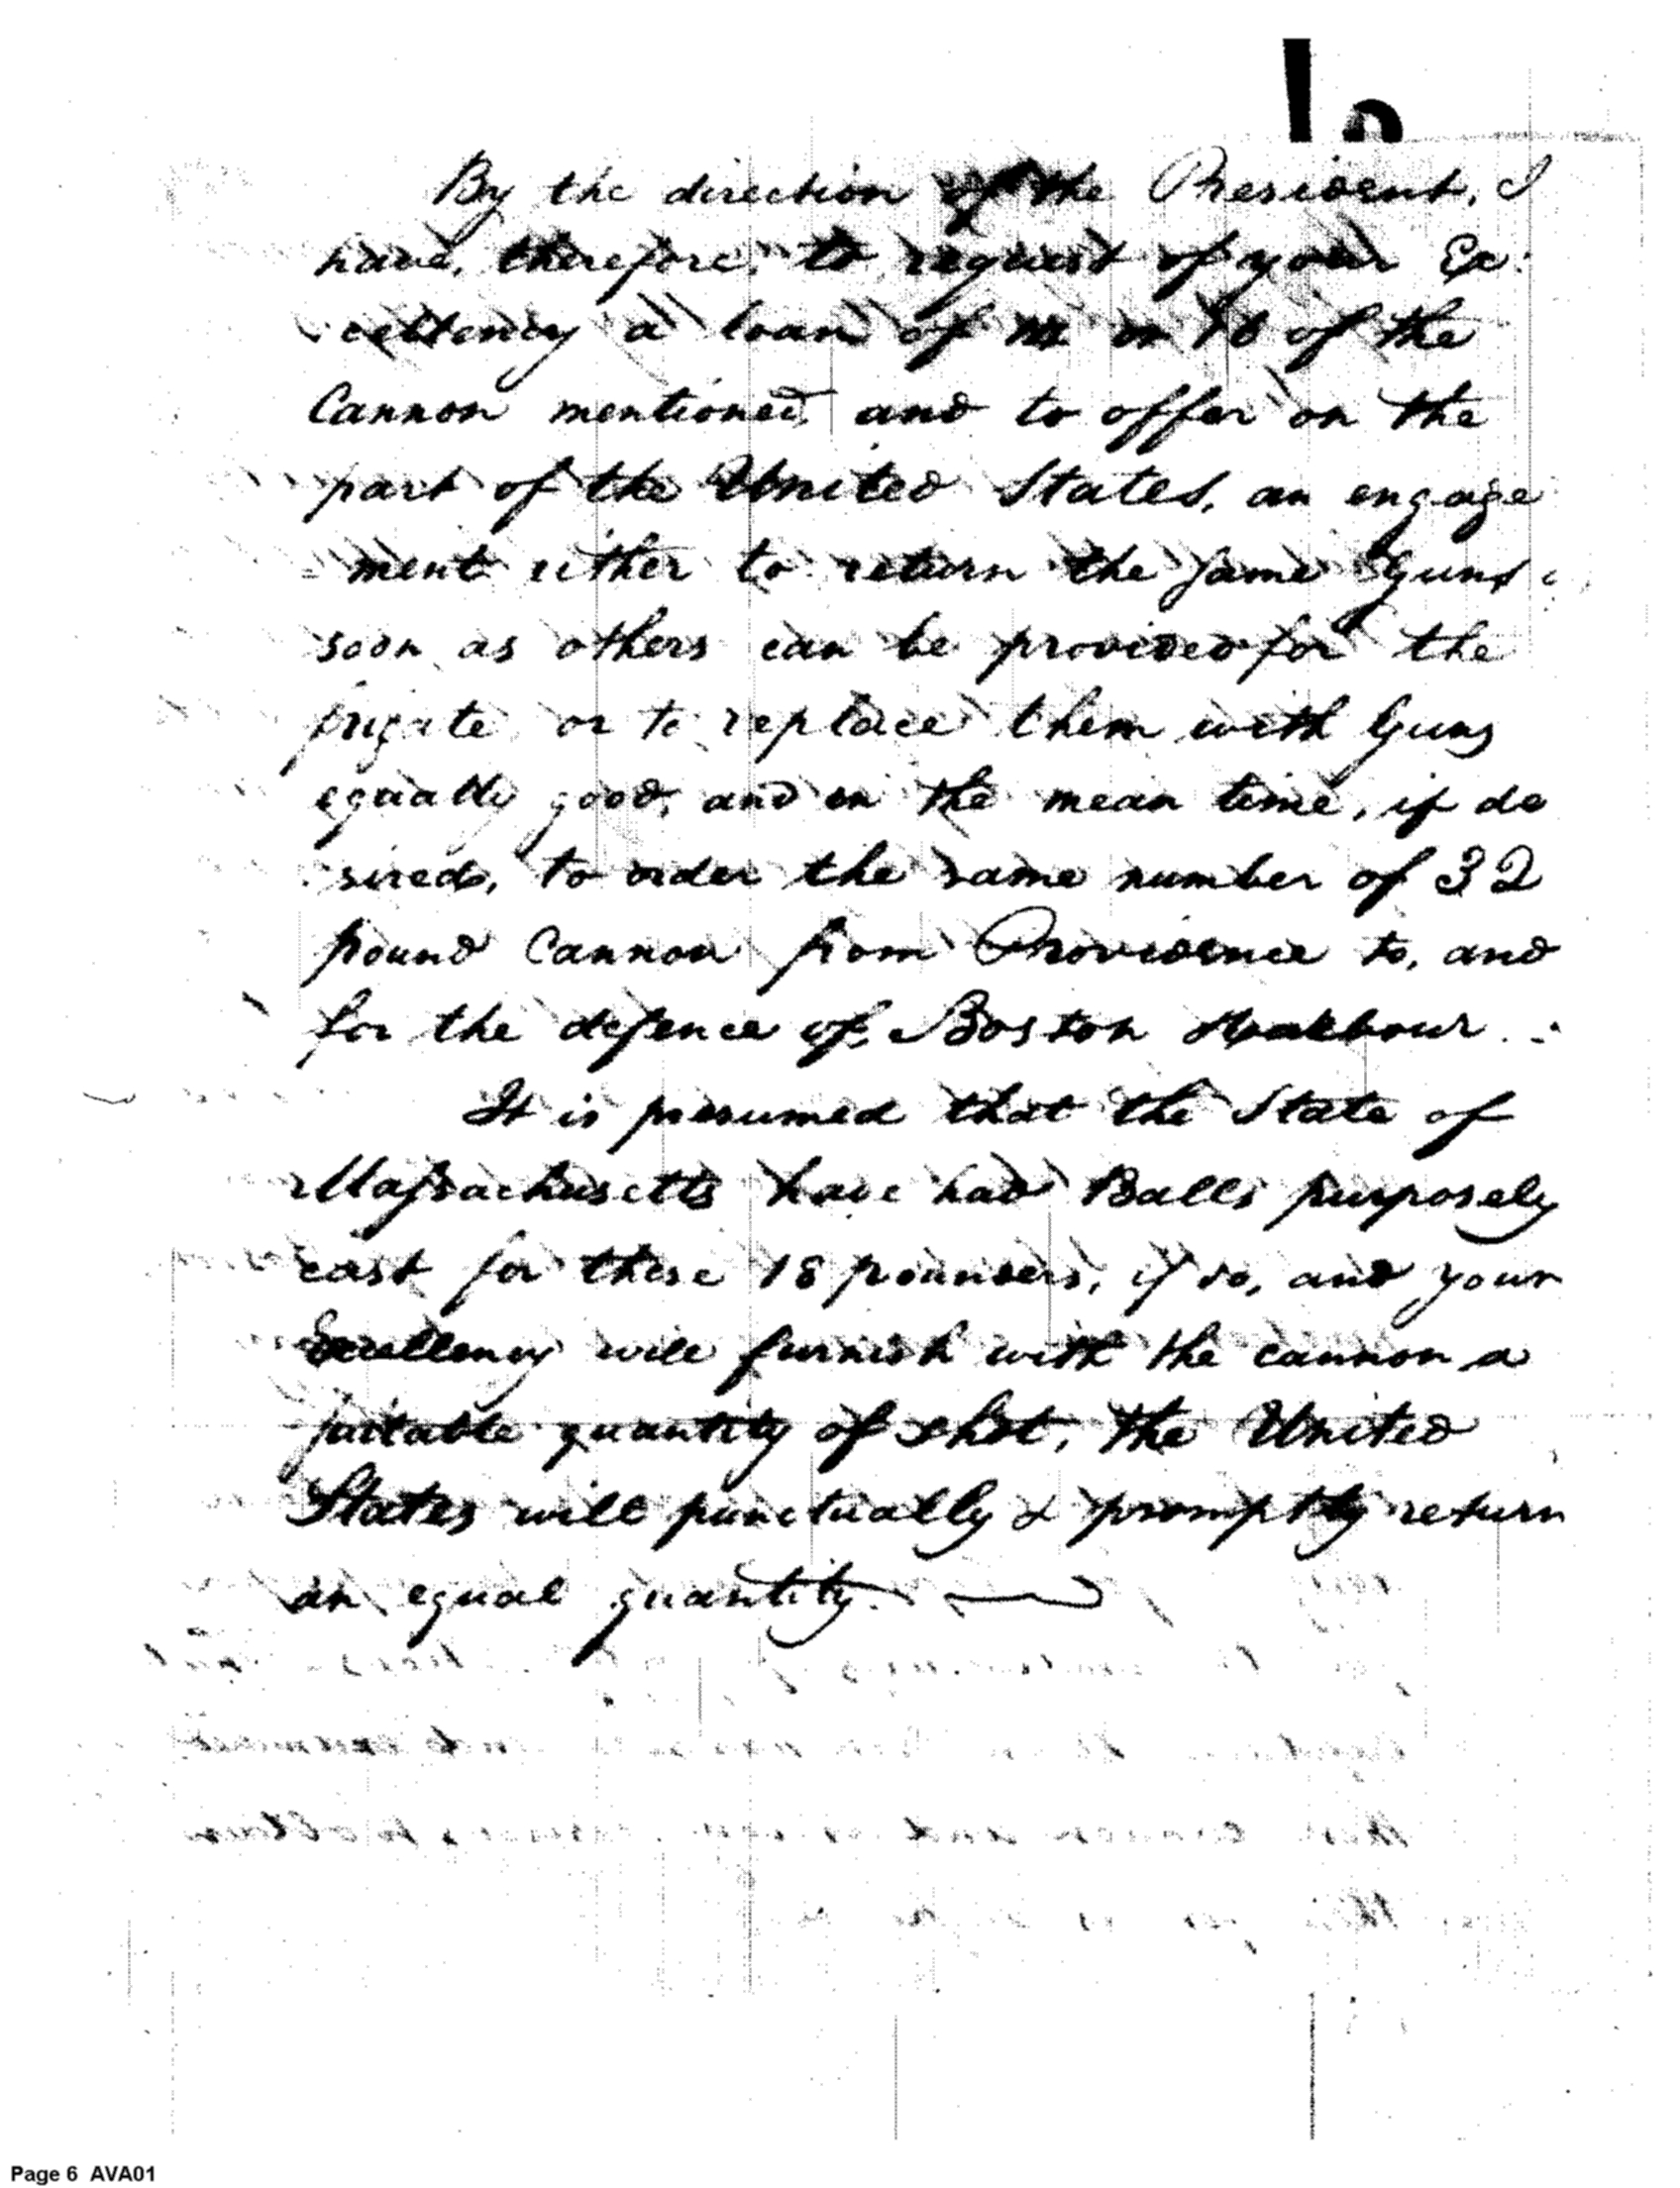 By the direction of the President, I
have, therefore, to request of your Ex:
cellency a loan of 14 or 16 of the
Cannon mentioned, and to offer on the
part of the United States, an engage
- ment either to return the same Guns
soon as others can be provided for the
frigate or to replace them with Guns
equally good, and in the mean time, if de
sired, to order the same number of 32
pound Cannon from Providence to, and
for the defence of, Boston Harbour.
It is presumed that the State of
Massachusetts have had Balls purposely
cast for these 18 pounders, if so, and your
Excellency will furnish with the cannon a
suitable quantity of shot, the United
States will punctually & promptly return
an equal quantity.
Page 6 AVA01